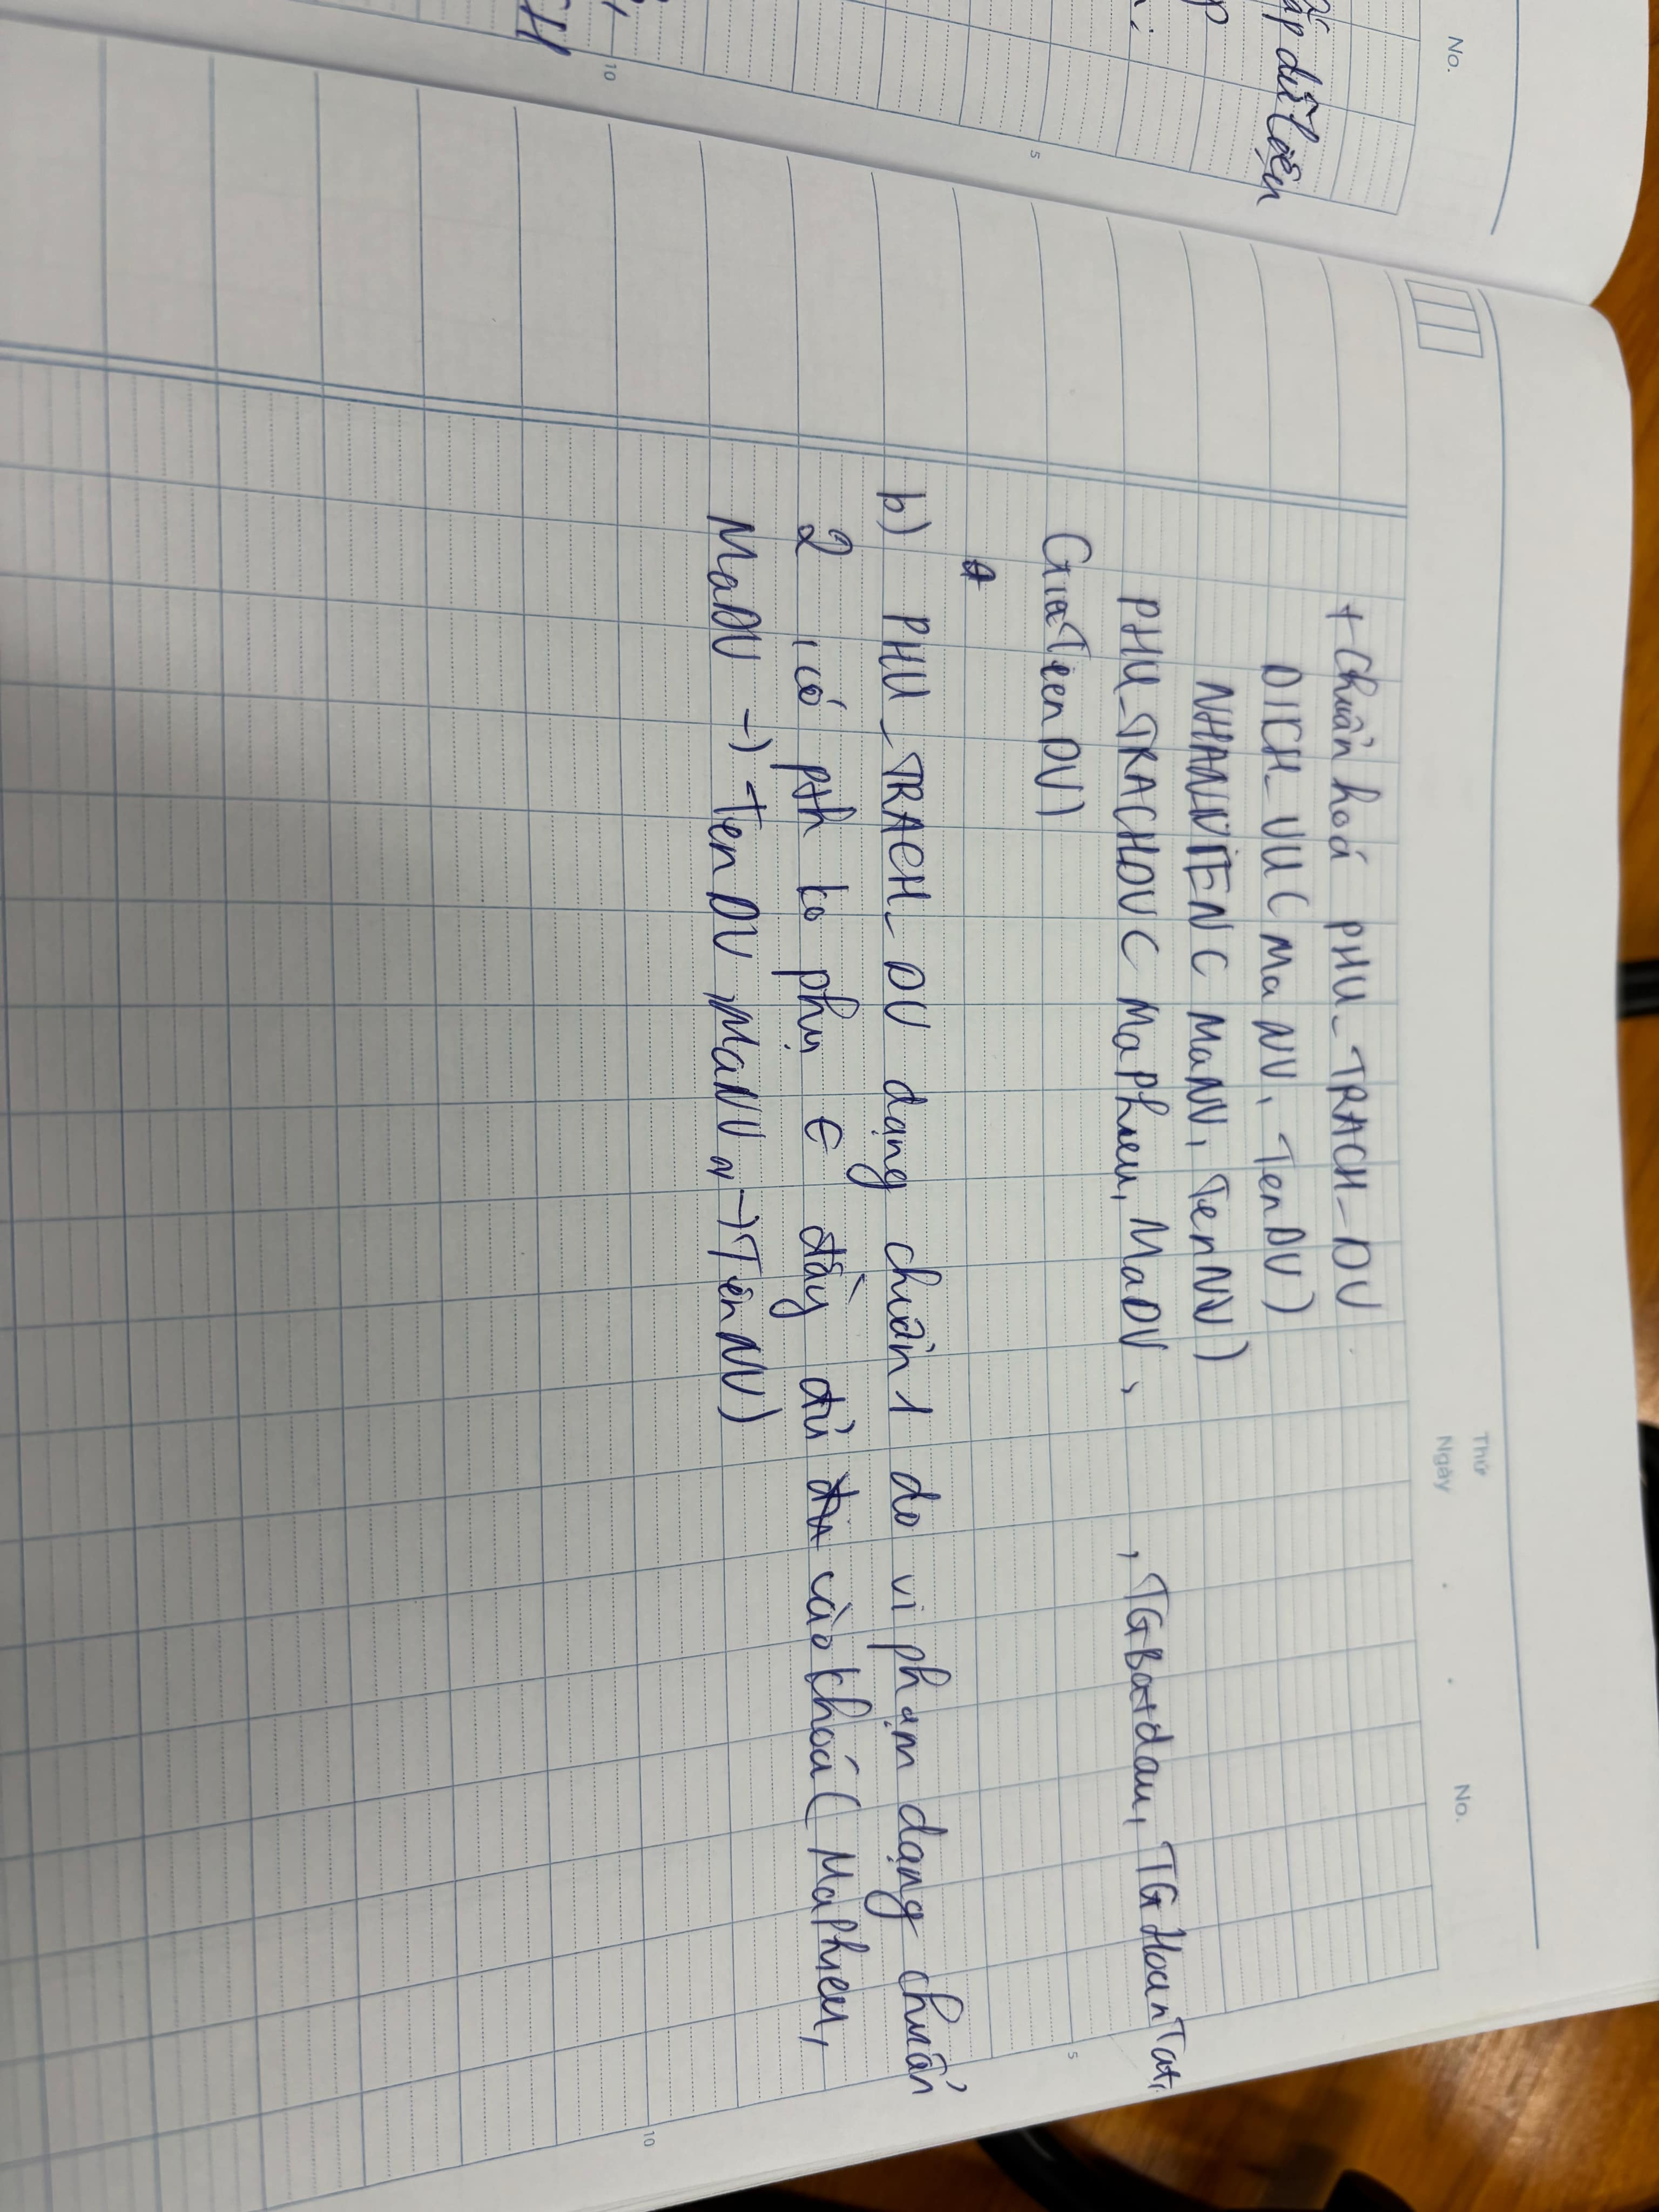 No.
ấp dữ liệu
p
5
10
Thứ
Ngày
No.
+ Chuẩn hoá PHU_TRACH_DV
DICH_VU ( Ma NV, TenDV)
NHANVIEN ( MaNV, TenNV)
PHU_TRACHDV ( MaPhieu, MaDV, , TGBatdau, TGHoanTat,
GiaTienDV)
b) PHU_TRACH_DV dạng chuẩn 1 do vi phạm dạng chuẩn
5
2 , có pth ko phụ € đầy đủ vào khoá ( MaPhieu,
MaDV -> TenDV, MaNV -> TênNV)
10